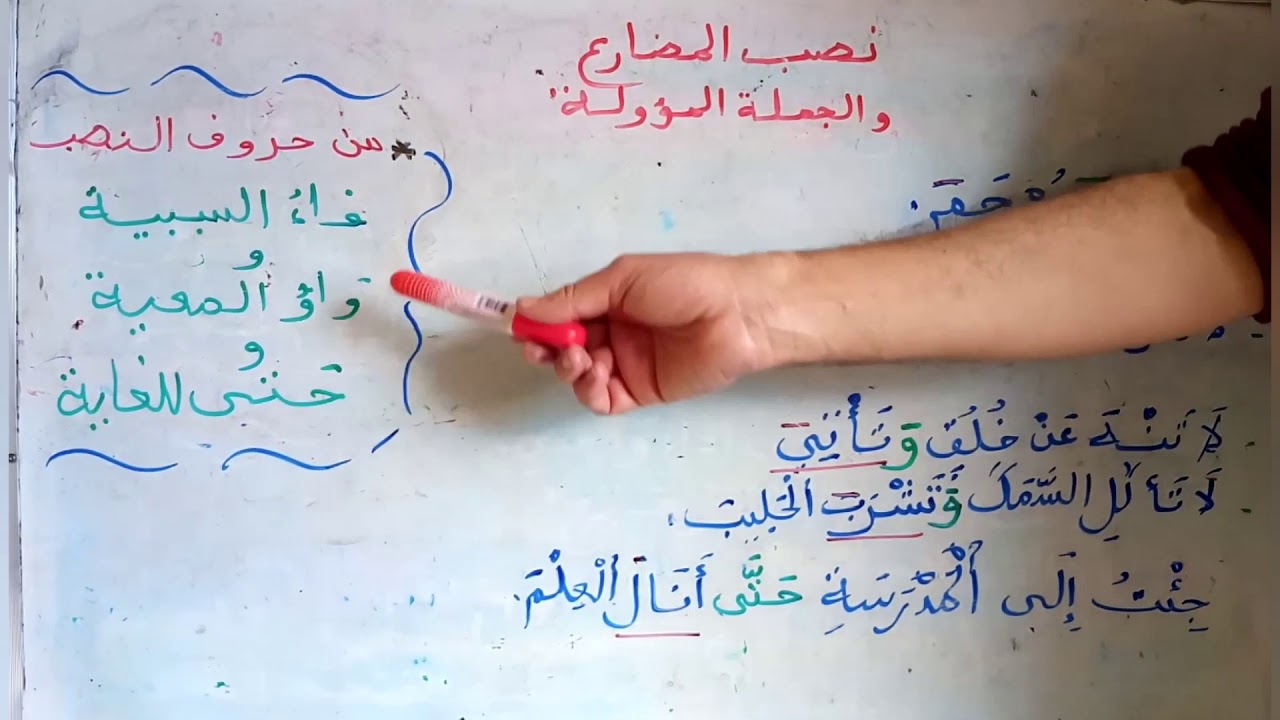 نصب المضارع
والجملة المؤولة
* من حروف النصب
فاءُ السببية
و
واوُ المعية
و
حتى للغاية
لَا تَنْهَ عَنْ خُلُقٍ وَتَأْتِيَ
لَا تَأكُلِ السَّمَكَ وَتَشْرَبَ الحَلِيبَ.
جِئْتُ إِلَى الْمَدْرَسَةِ حَتَّى أَنَالَ الْعِلْمَ.